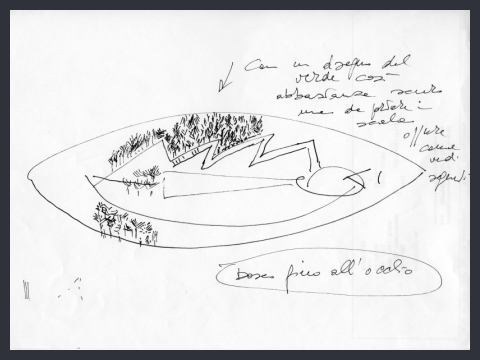 Con un disegno del
verde così
abbastanza
una de
scala
oppure
come
vedi
bosco fino all'occhio